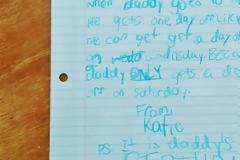 when daddy goes to
He gets one day off
he can get get a day
on wednesday. BEC
daddy ONLY gets a
off on saturday.
From
Katie
Ps it is daddy's